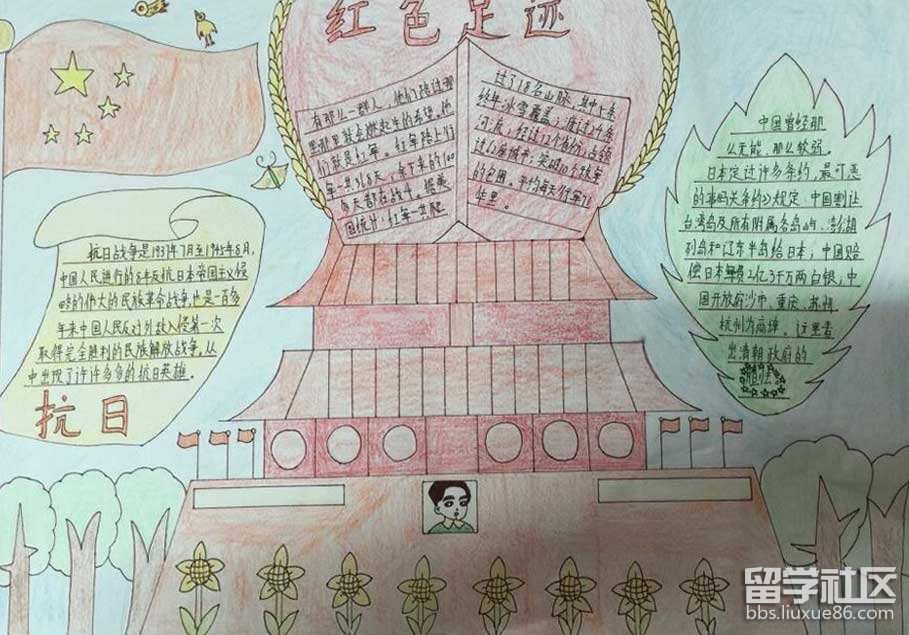 红色足迹
有那么一群人，他们路过哪
里哪里就会燃起生的希望，他
们就是红军。红军路上行
军一共368天，余下来的100
多天都在战斗。据美
国统计，红军一共爬
过了18名山脉，其中5条
终年冰雪覆盖；渡过24条
河流，经过12个省份，占领
过62座城市，突破10个敌军
的包围，平均每天行军71
华里。
中国曾经那
么无能，那么软弱。
日本定过许多条约，最可恶
的事吗关条约》规定，中国割让
台湾岛及所有附属各岛屿、澎湖
列岛和辽东半岛给日本；中国赔
偿日本军费2亿3千万两白银；中
国开放府沙市、重庆、苏州
杭州为商埠。这里看
出清朝政府的
抗日战争是1937年7月至1945年8月，
中国人民进行的8年反抗日本帝国主义侵
略的伟大的民族革命战争也是一百多
年来中国人民反对外敌入侵第一次
取得完全胜利的民族解放战争，从
中出现了许许多多的抗日英雄。
抗日
留学社区
bbs.liuxue86.com